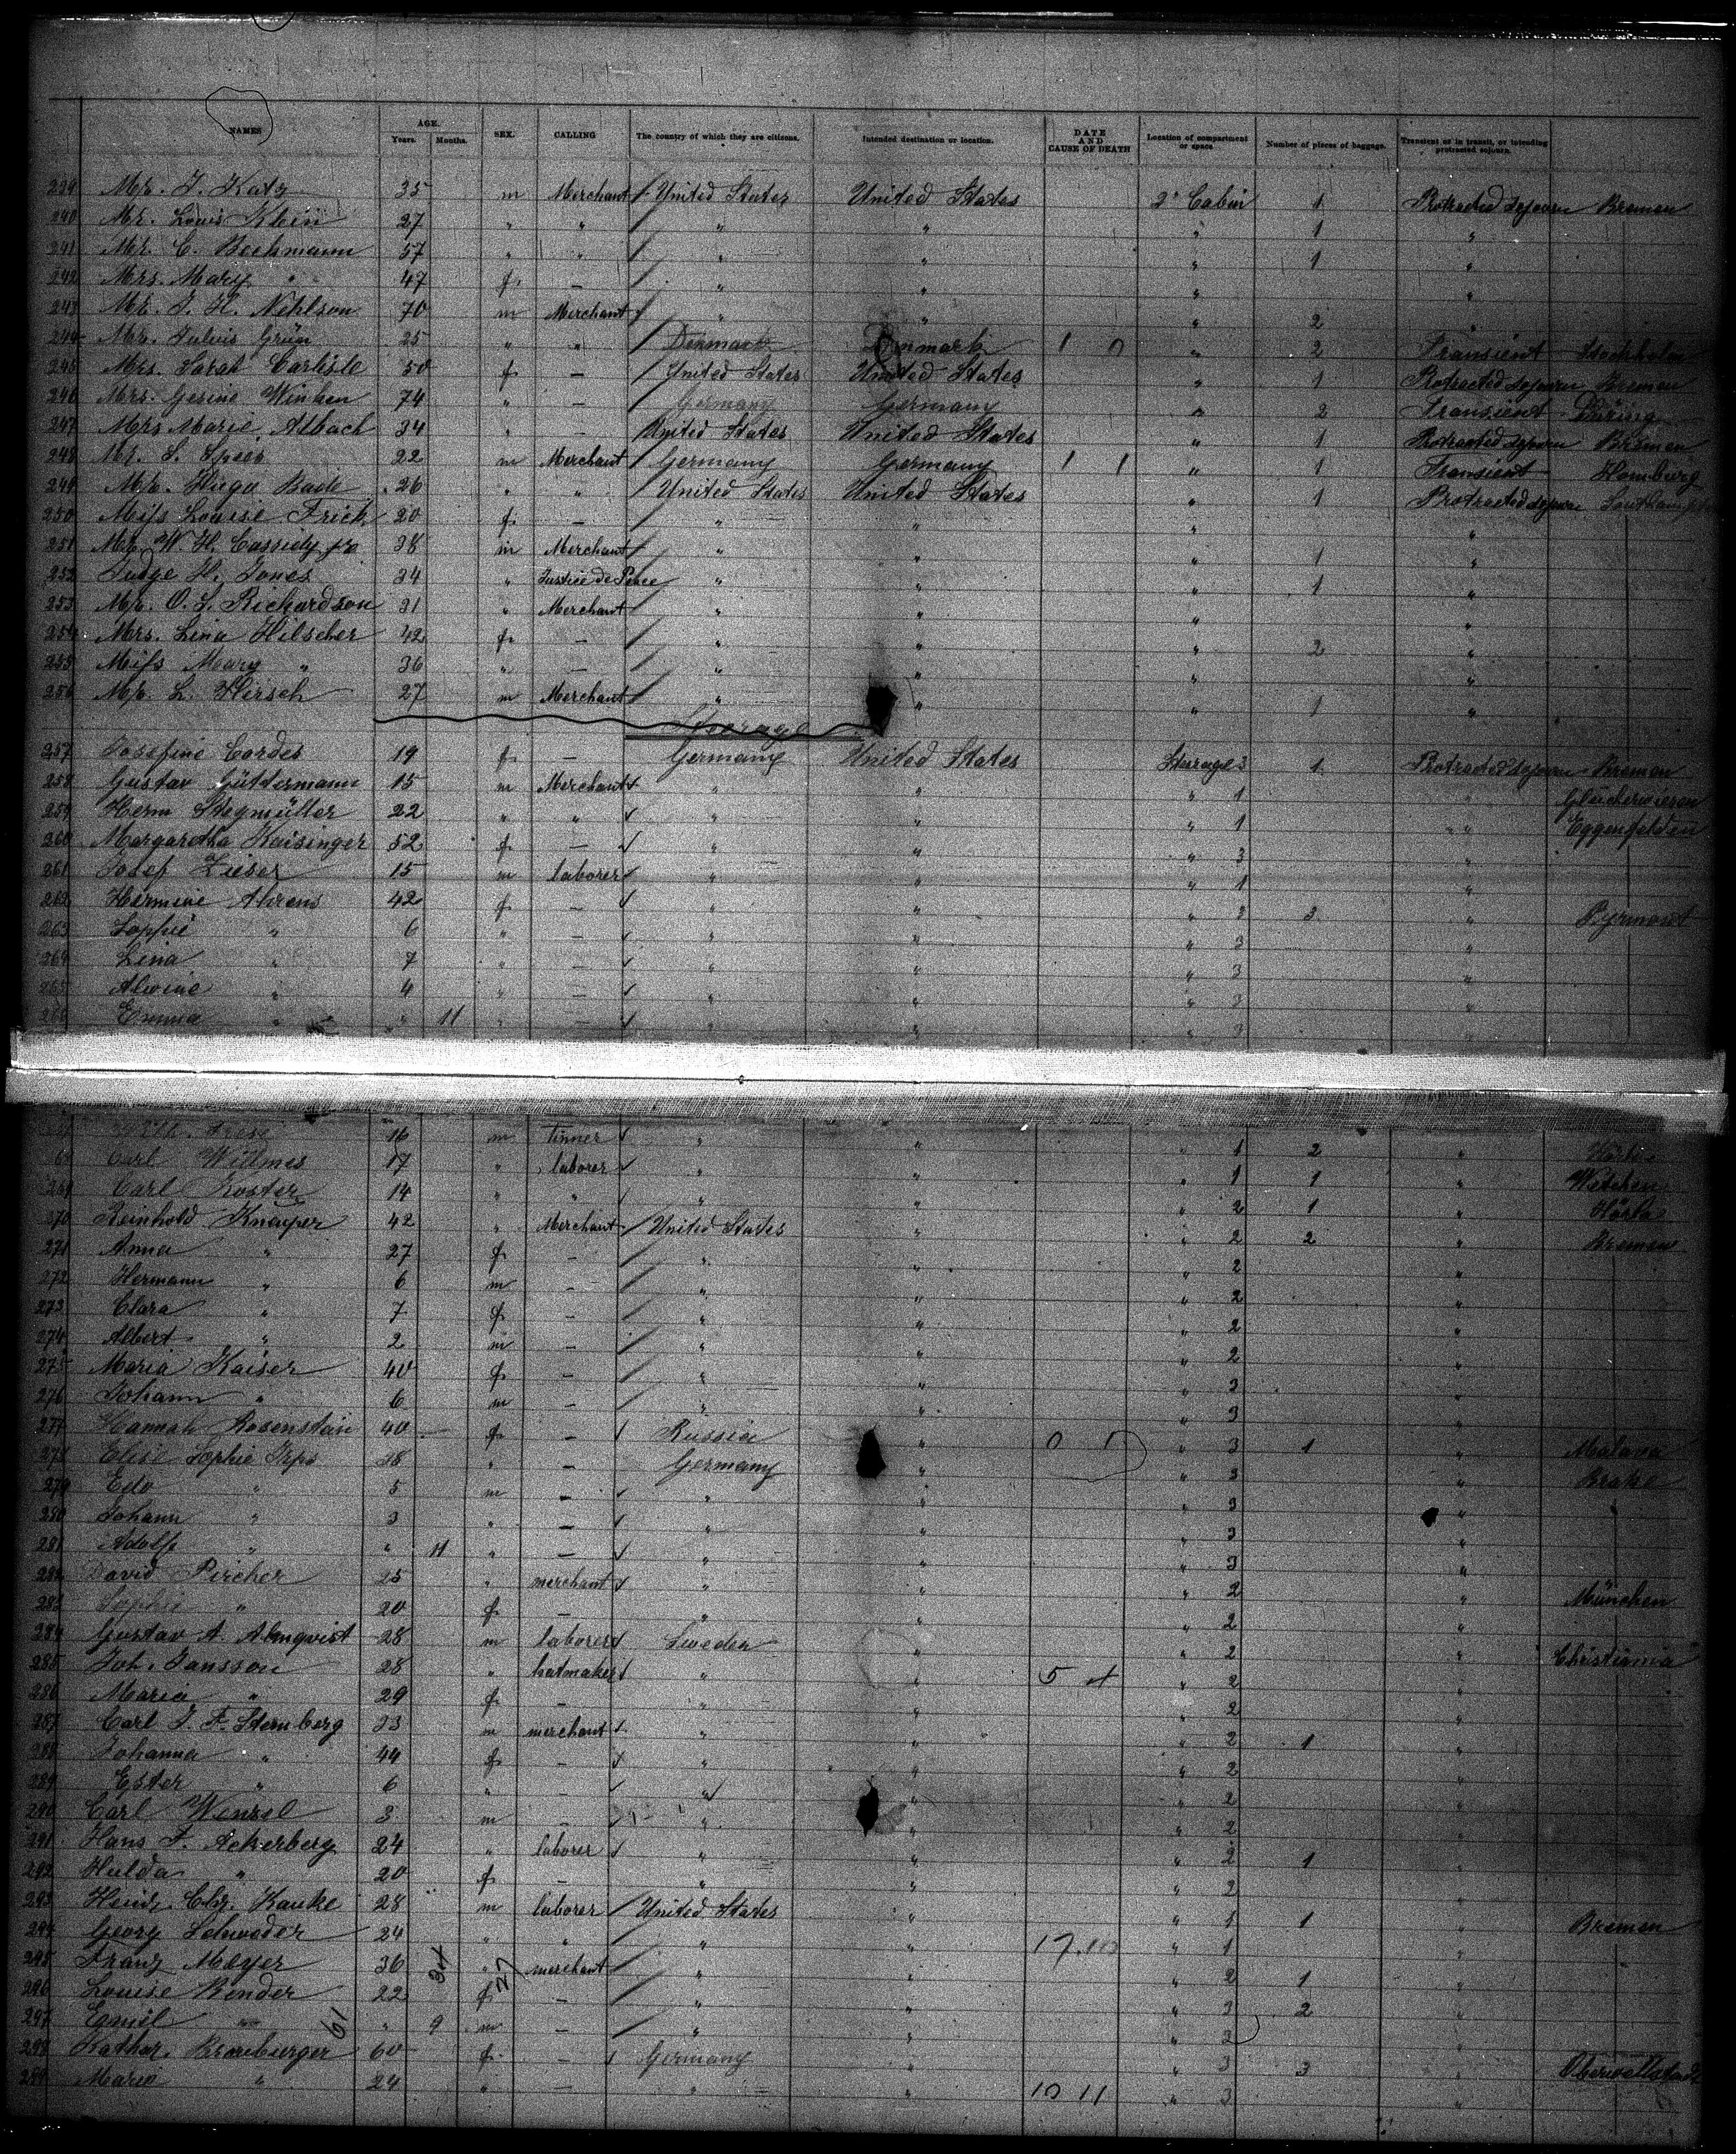 NAMES AGE. Years. Months. SEX. CALLING The country of which they are citizens. Intended destination or location. DATE AND CAUSE OF DEATH Location of compartment or space Number of pieces of baggage. Transient or in transit, or intending protracted sojourn.
239 Mr. J. Katz 35 m Merchant United States United States 2d Cabin 1 Protracted sojourn Bremen
240 Mr. Louis Klein 27 " " " " " 1 "
241 Mr. C. Bechmann 57 " " " " " 1 "
242 Mrs. Mary " 47 f – " " " "
243 Mr. J. H. Nehlson 70 m Merchant " " " 2 "
244 Mr. Julius Grün 25 " " Denmark Denmark 1 0 " 2 Transient Stockholm
245 Mrs. Sarah Carlisle 50 f – United States United States " 1 Protracted sojourn Bremen
246 Mrs. Gesine Winken 74 " – Germany Germany " 2 Transient
247 Mrs Marie Albach 34 " – United States United States " 1 Protracted sojourn Bremen
248 Mr. S. Spees 22 m Merchant Germany Germany 1 1 " 1 Transient Homburg
249 Mr. Hugo Bade 26 " " United States United States " 1 Protracted sojourn
250 Miss Louise Frick 20 f – " " " "
251 Mr. W. H. Cassidy jr 38 m Merchant " " " 1 "
252 Judge H. Jones 34 " Justice de Peace " " " 1 "
253 Mr. O. S. Richardson 31 " Merchant " " " "
254 Mrs. Lina Hilscher 42 f – " " " 2 "
255 Miss Mary " 36 " – " " " "
256 Mr. L. Hirsch 27 m Merchant " " " 1 "
Steerage
257 Josefine Cordes 19 f – Germany United States Steerage 3 1 Protracted sojourn Bremen
258 Gustav Güttermann 15 m Merchant " " " 1 " Gleicherwiesen
259 Herm Stegmüller 22 " " " " " 1 " Eggenfelden
260 Margaretha Kaisinger 52 f – " " " 3 "
261 Josef Zieser 15 m laborer " " " 1 "
262 Hermine Ahrens 42 f – " " " 3 3 " Pyrmont
263 Sophie " 6 " – " " " 3 "
264 Lina " 7 " – " " " 3 "
265 Alwine " 4 " – " " " 3 "
266 Emma " " 11 " – " " " 3
16 m tinner " " " 1 2 "
Carl Willmes 17 " laborer " " " 1 1 "
269 Carl Koster 14 " " " " " 2 1 "
270 Reinhold Knieper 42 " Merchant United States " " 2 2 " Bremen
271 Anna " 27 f – " " " 2 "
272 Hermann " 6 m – " " " 2 "
273 Clara " 7 f – " " " 2 "
274 Albert " 2 m – " " " 2 "
275 Maria Kaiser 40 f – " " " 3 "
276 Johann " 6 m – " " " 3 "
277 Hannah Rosenstein 40 f – Russia " 0 " 3 1 " Malava
278 Elise Sophie Irps 38 " – Germany " " 3 " Brake
279 Edo " 5 m – " " " 3 "
280 Johann " 3 " – " " " 3 "
281 Adolf " " 11 " – " " " 3 "
282 David Pircher 25 " merchant " " " 2 " München
283 Sophie " 20 f – " " " 2 "
284 Gustav A. Almqvist 28 m laborer Sweden " " 2 " Christiania
285 Joh. Jansson 28 " hatmaker " " 5 4 " 2 "
286 Maria " 29 f – " " " 2 "
287 Carl J. F. Sternberg 33 m merchant " " " 2 1 "
288 Johanna " 44 f – " " " 2 "
289 Ester " 6 " – " " " 2 "
290 Carl Wensel 3 m – " " " 2 "
291 Hans F. Ackerberg 24 " laborer " " " 2 1 "
292 Hulda " 20 f – " " " 2 "
293 Heinr. Chr. Kauke 28 m laborer United States " " 1 1 " Bremen
294 Georg Schroder 24 " " " " 17.10 " 1 "
295 Franz Meyer 36 " merchant " " " 2 1 "
296 Louise Bender 22 f – " " " 3 2 "
297 Emil " " 9 m – " " " 3 "
298 Kathar. Bramburger 60 f – Germany " " 3 3 "
299 Marie " 24 " – " " 10 11 " 3 "
61 34 27